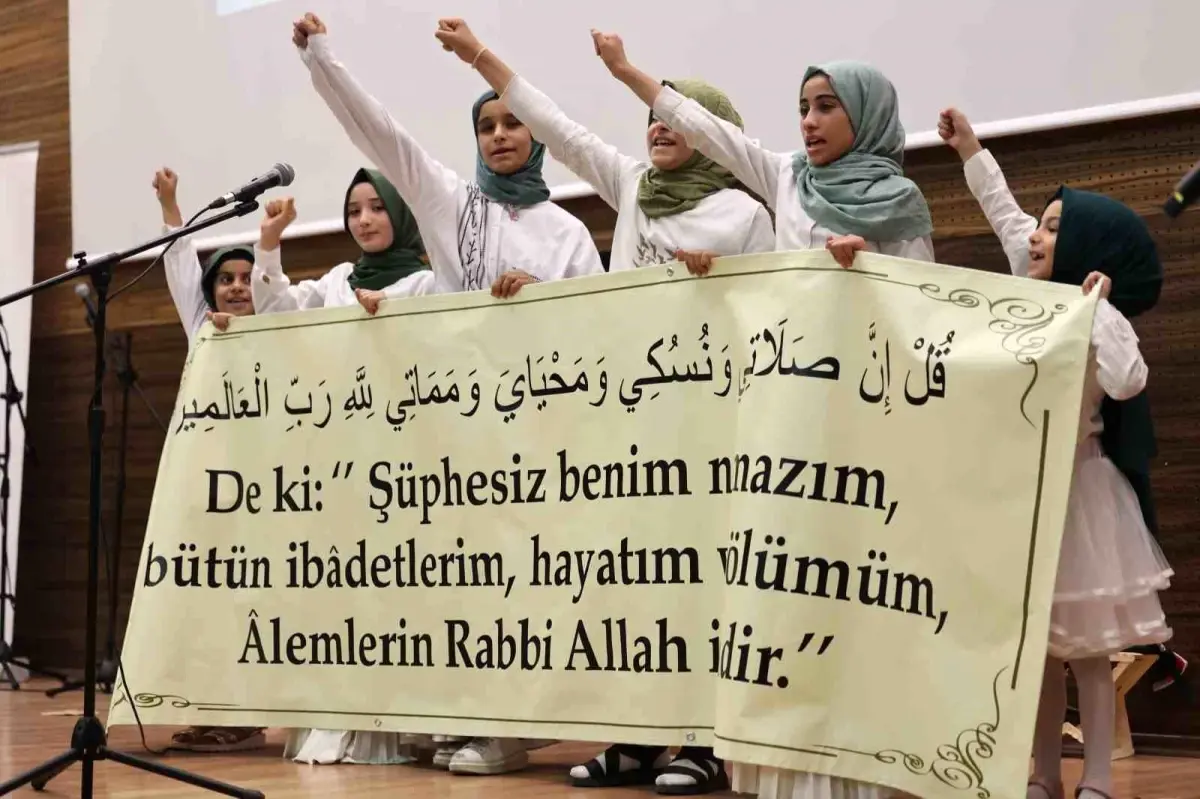 قُلْ إِنَّ صَلَاتِي وَنُسُكِي وَمَحْيَايَ وَمَمَاتِي لِلَّهِ رَبِّ الْعَالَمِينَ
De ki:'' Şüphesiz benim namazım,
bütün ibâdetlerim, hayatım ölümüm,
Âlemlerin Rabbi Allah ''